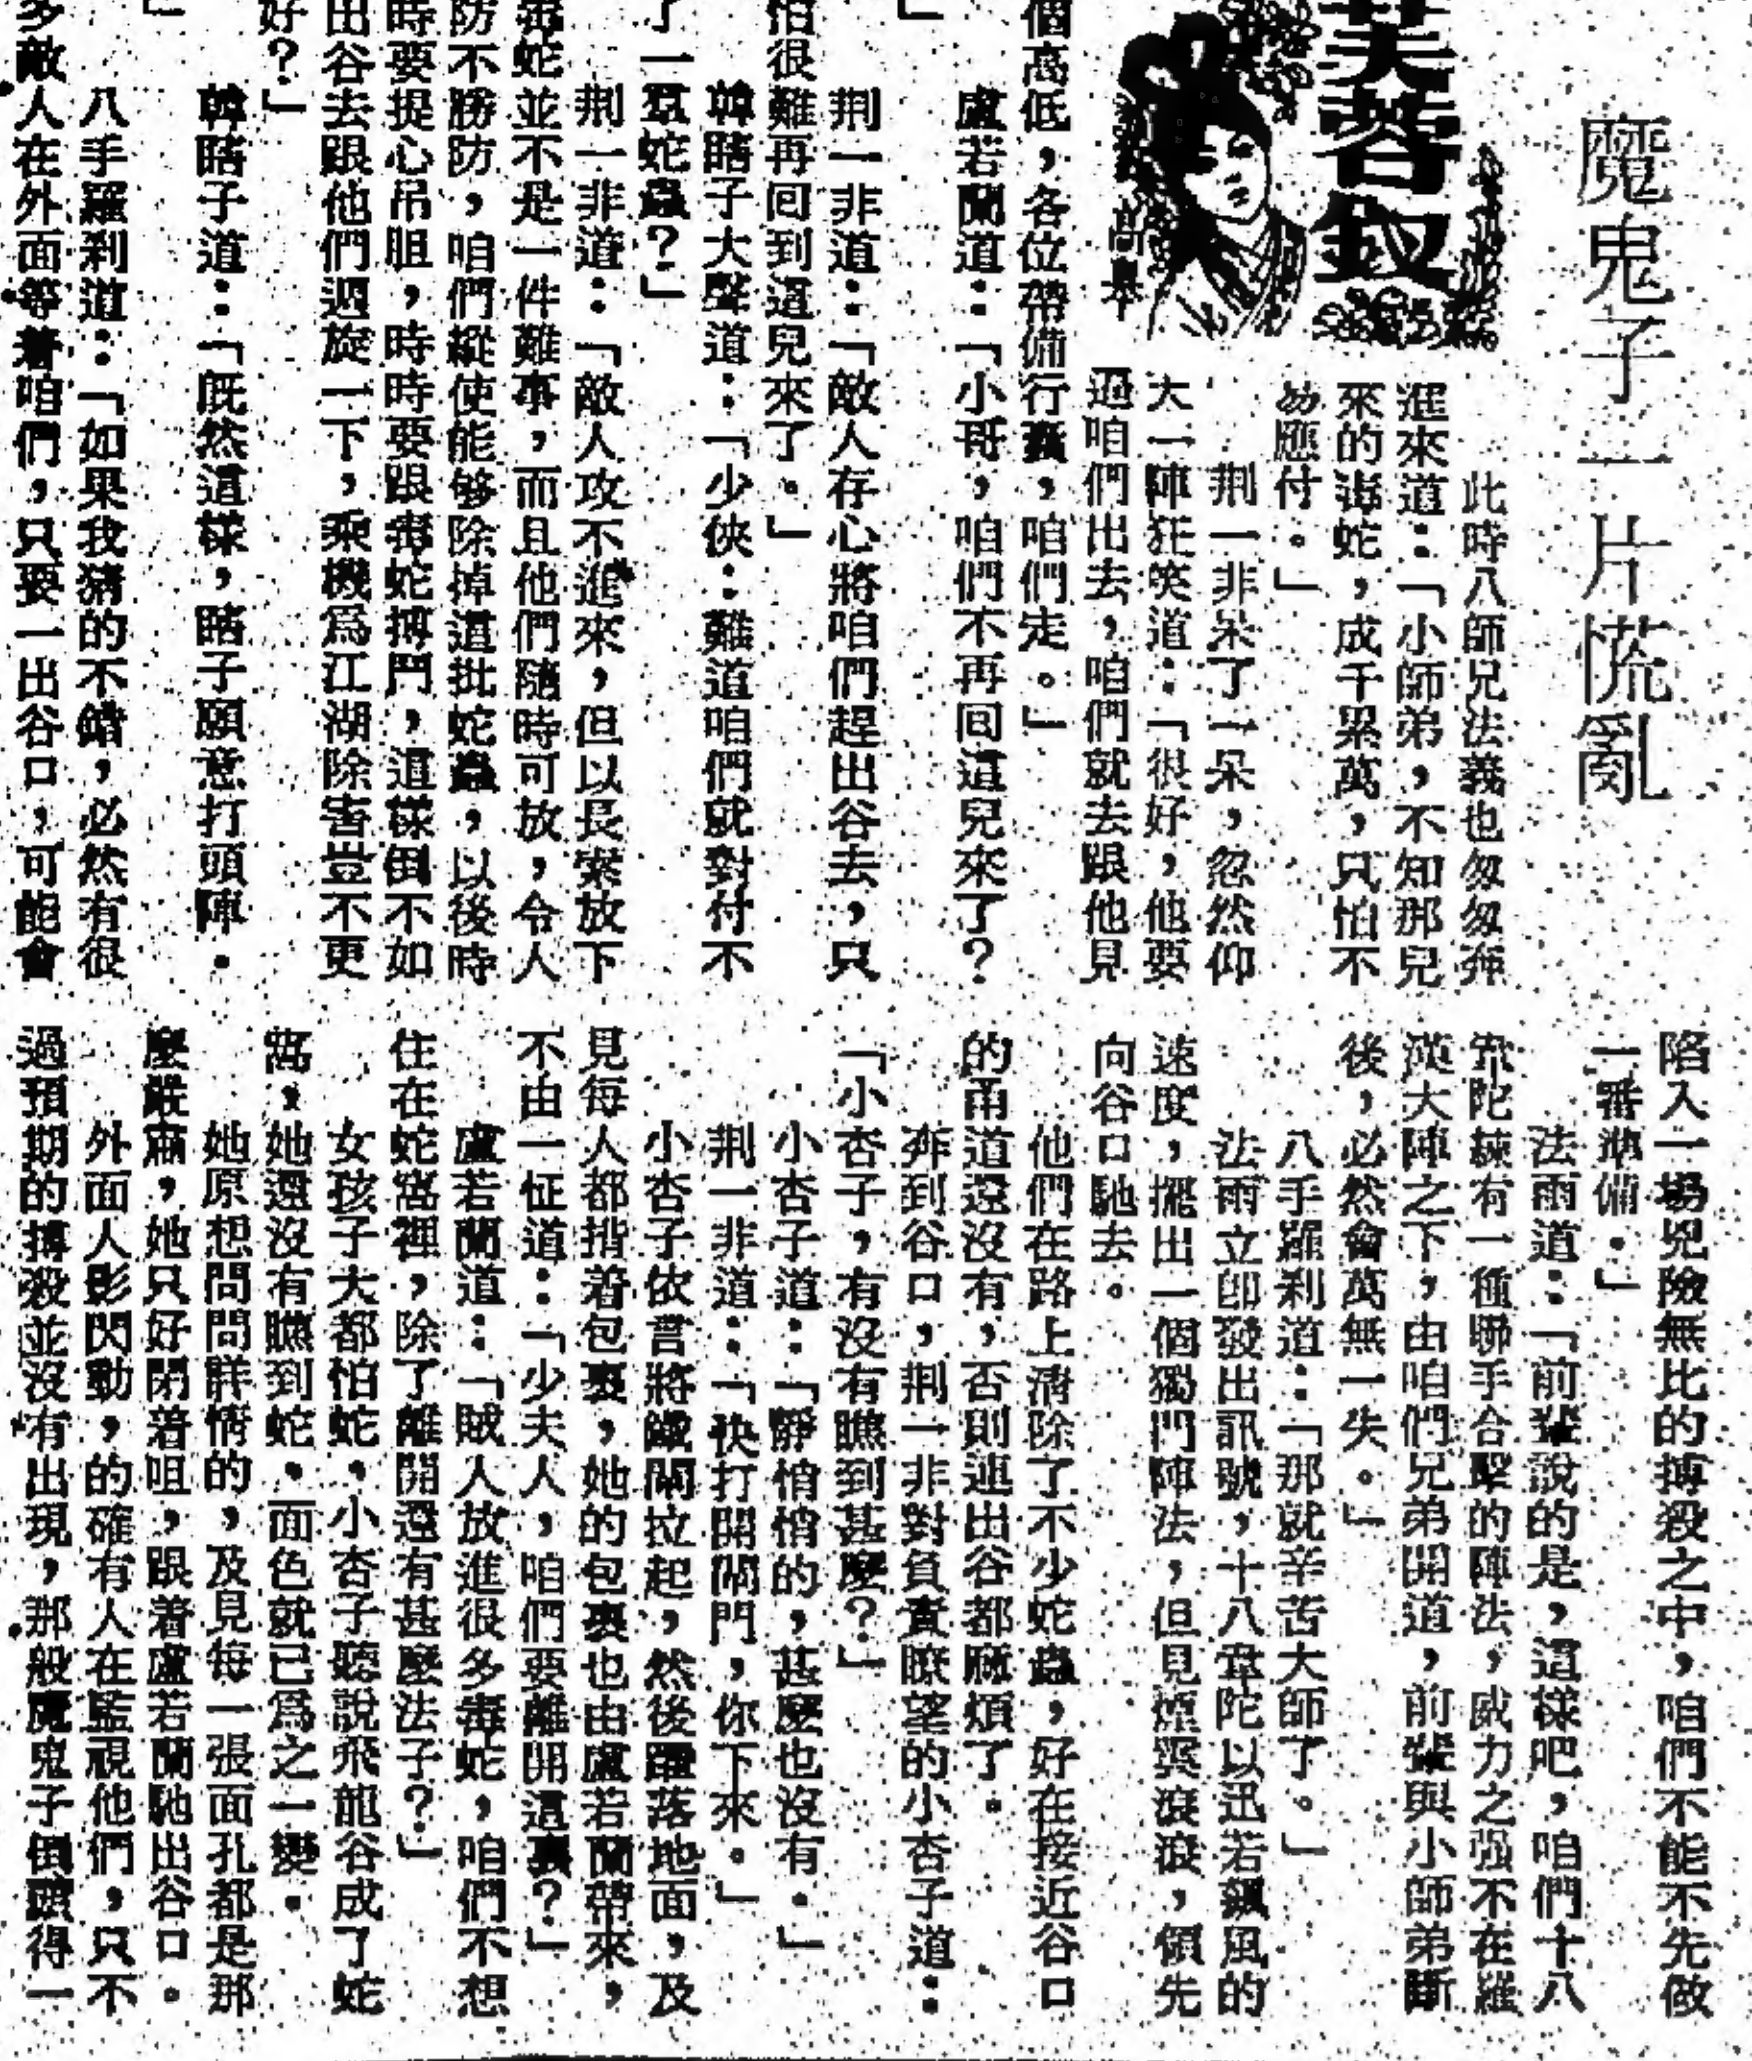 魔鬼子一片慌亂
芙蓉釵
高皋
此時八師兄法義也匆匆奔
進來道：「小師弟，不知那兒
來的毒蛇，成千累萬，只怕不
易應付。」
荆一非呆了一呆，忽然仰
大一陣狂笑道：「很好，他要
迫咱們出去，咱們就去跟他見
個高低，各位帶備行囊，咱們走。」
盧若蘭道：「小哥，咱們不再回這兒來了？
」
荆一非道：「敵人存心將咱們趕出谷去，只
怕很難再回到這兒來了。」
韓瞎子大聲道：「少俠：難道咱們就對付不
了一羣蛇蟲？」
荆一非道：「敵人攻不進來，但以長索放下
毒蛇並不是一件難事，而且他們隨時可放，令人
防不勝防，咱們縱使能够除掉這批蛇蟲，以後時
時要提心吊胆，時時要跟毒蛇搏鬥，這樣倒不如
出谷去跟他們週旋一下，乘機爲江湖除害豈不更
好？」
韓瞎子道：「旣然這樣，瞎子願意打頭陣。
」
八手羅刹道：「如果我猜的不錯，必然有很
多敵人在外面等着咱們，只要一出谷口，可能會
陷入一場兇險無比的搏殺之中，咱們不能不先做
一番準備。」
法雨道：「前輩說的是，這樣吧，咱們十八
韋陀練有一種聯手合擊的陣法，威力之强不在羅
漢大陣之下，由咱們兄弟開道，前輩與小師弟斷
後，必然會萬無一失。」
八手羅刹道：「那就辛苦大師了。」
法雨立卽發出訊號，十八韋陀以迅若飆風的
速度，擺出一個獨門陣法，但見煙霧滾滾，領先
向谷口馳去。
他們在路上清除了不少蛇蟲，好在接近谷口
的甬道還沒有，否則連出谷都麻煩了。
奔到谷口，荆一非對負責瞭望的小杏子道：
「小杏子，有沒有瞧到甚麼？」
小杏子道：「靜悄悄的，甚麼也沒有。」
荆一非道：「快打開閘門，你下來。」
小杏子依言將鐵閘拉起，然後躍落地面，及
見每人都揹着包裹，她的包裹也由盧若蘭帶來，
不由一怔道：「少夫人，咱們要離開這裏？」
盧若蘭道：「賊人放進很多毒蛇，咱們不想
住在蛇窩裡，除了離開還有甚麼法子？」
女孩子大都怕蛇，小杏子聽說飛龍谷成了蛇
窩，她還沒有瞧到蛇，面色就已爲之一變。
她原想問問詳情的，及見每一張面孔都是那
麼嚴肅，她只好閉着咀，跟着盧若蘭馳出谷口。
外面人影閃動，的確有人在監視他們，只不
過預期的搏殺並沒有出現，那般魔鬼子倒顯得一